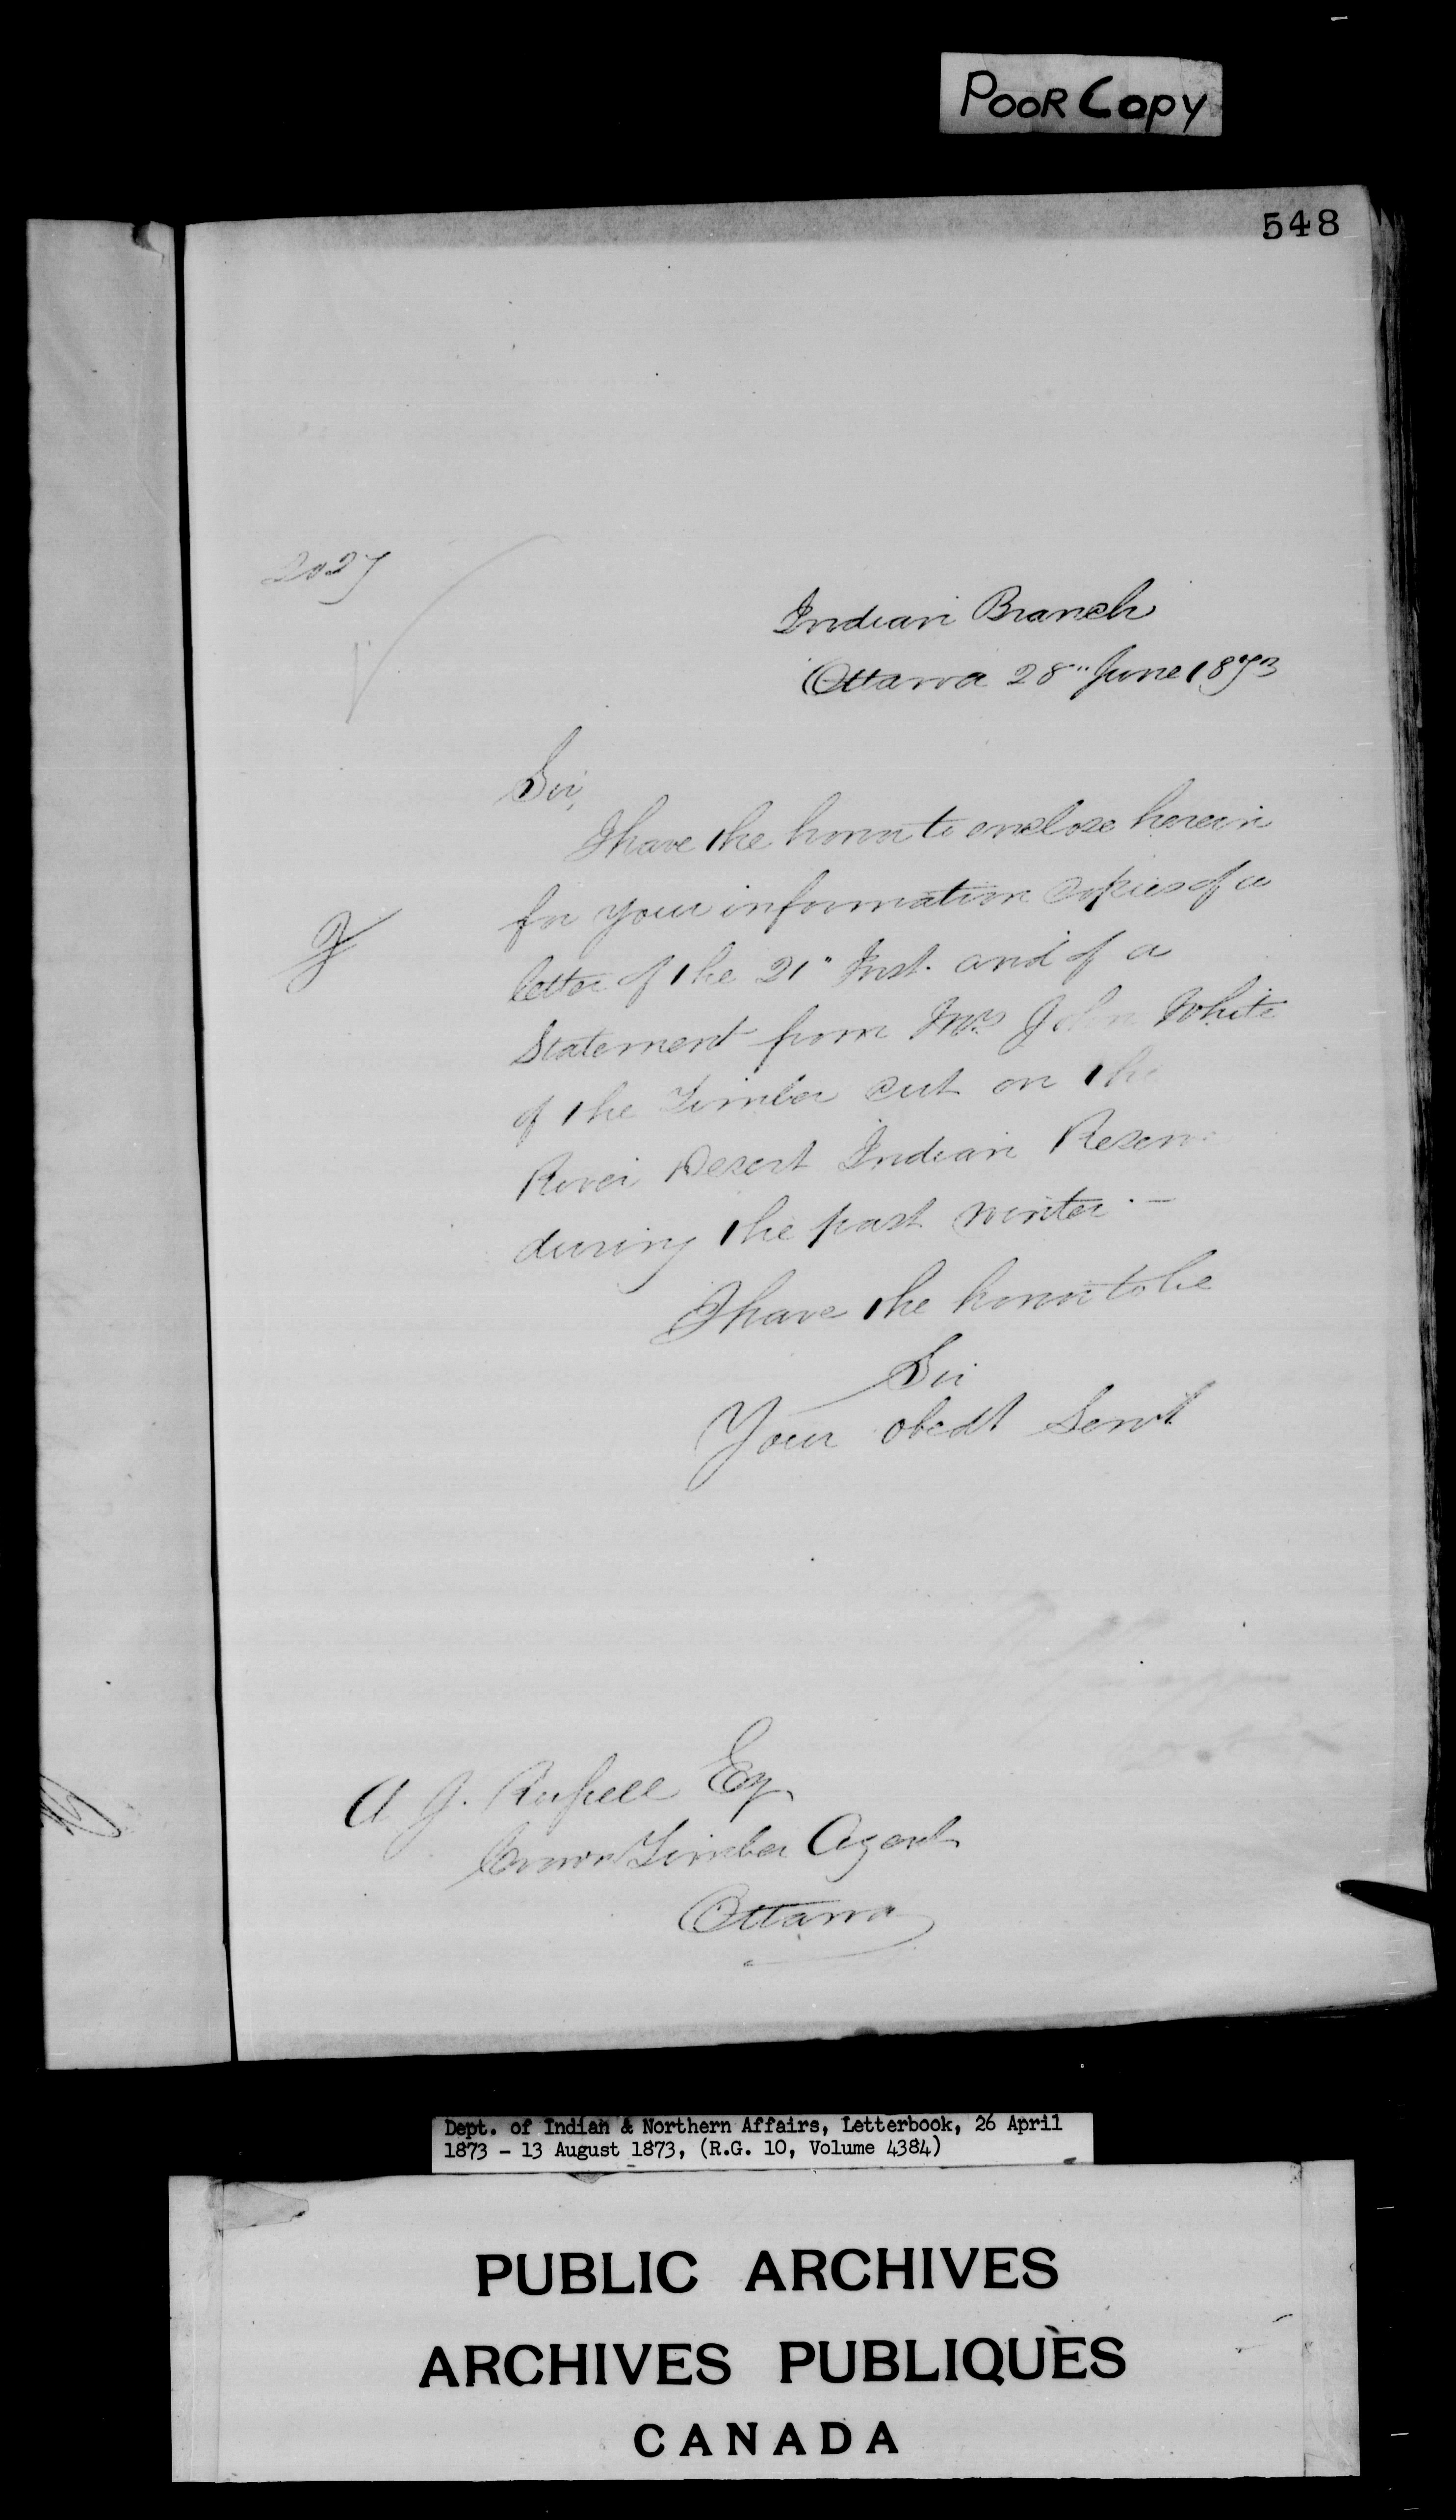 POOR COPY
548
2027
Indian Branch
Ottawa 28" June 1873
Sir,
I have the honor to enclose herein
for your information copies of a
letter of the 21" Inst. and of a
Statement from Mr. John White
of the Timber cut on the
River Desert Indian Reserve
during the past winter. —
I have the honor to be
Sir
Your obedt Servt
A J. Russell Esq
Crown Timber Agent
Ottawa
Dept. of Indian & Northern Affairs, Letterbook, 26 April
1873 - 13 August 1873, (R.G. 10, Volume 4384)
PUBLIC ARCHIVES
ARCHIVES PUBLIQUES
CANADA